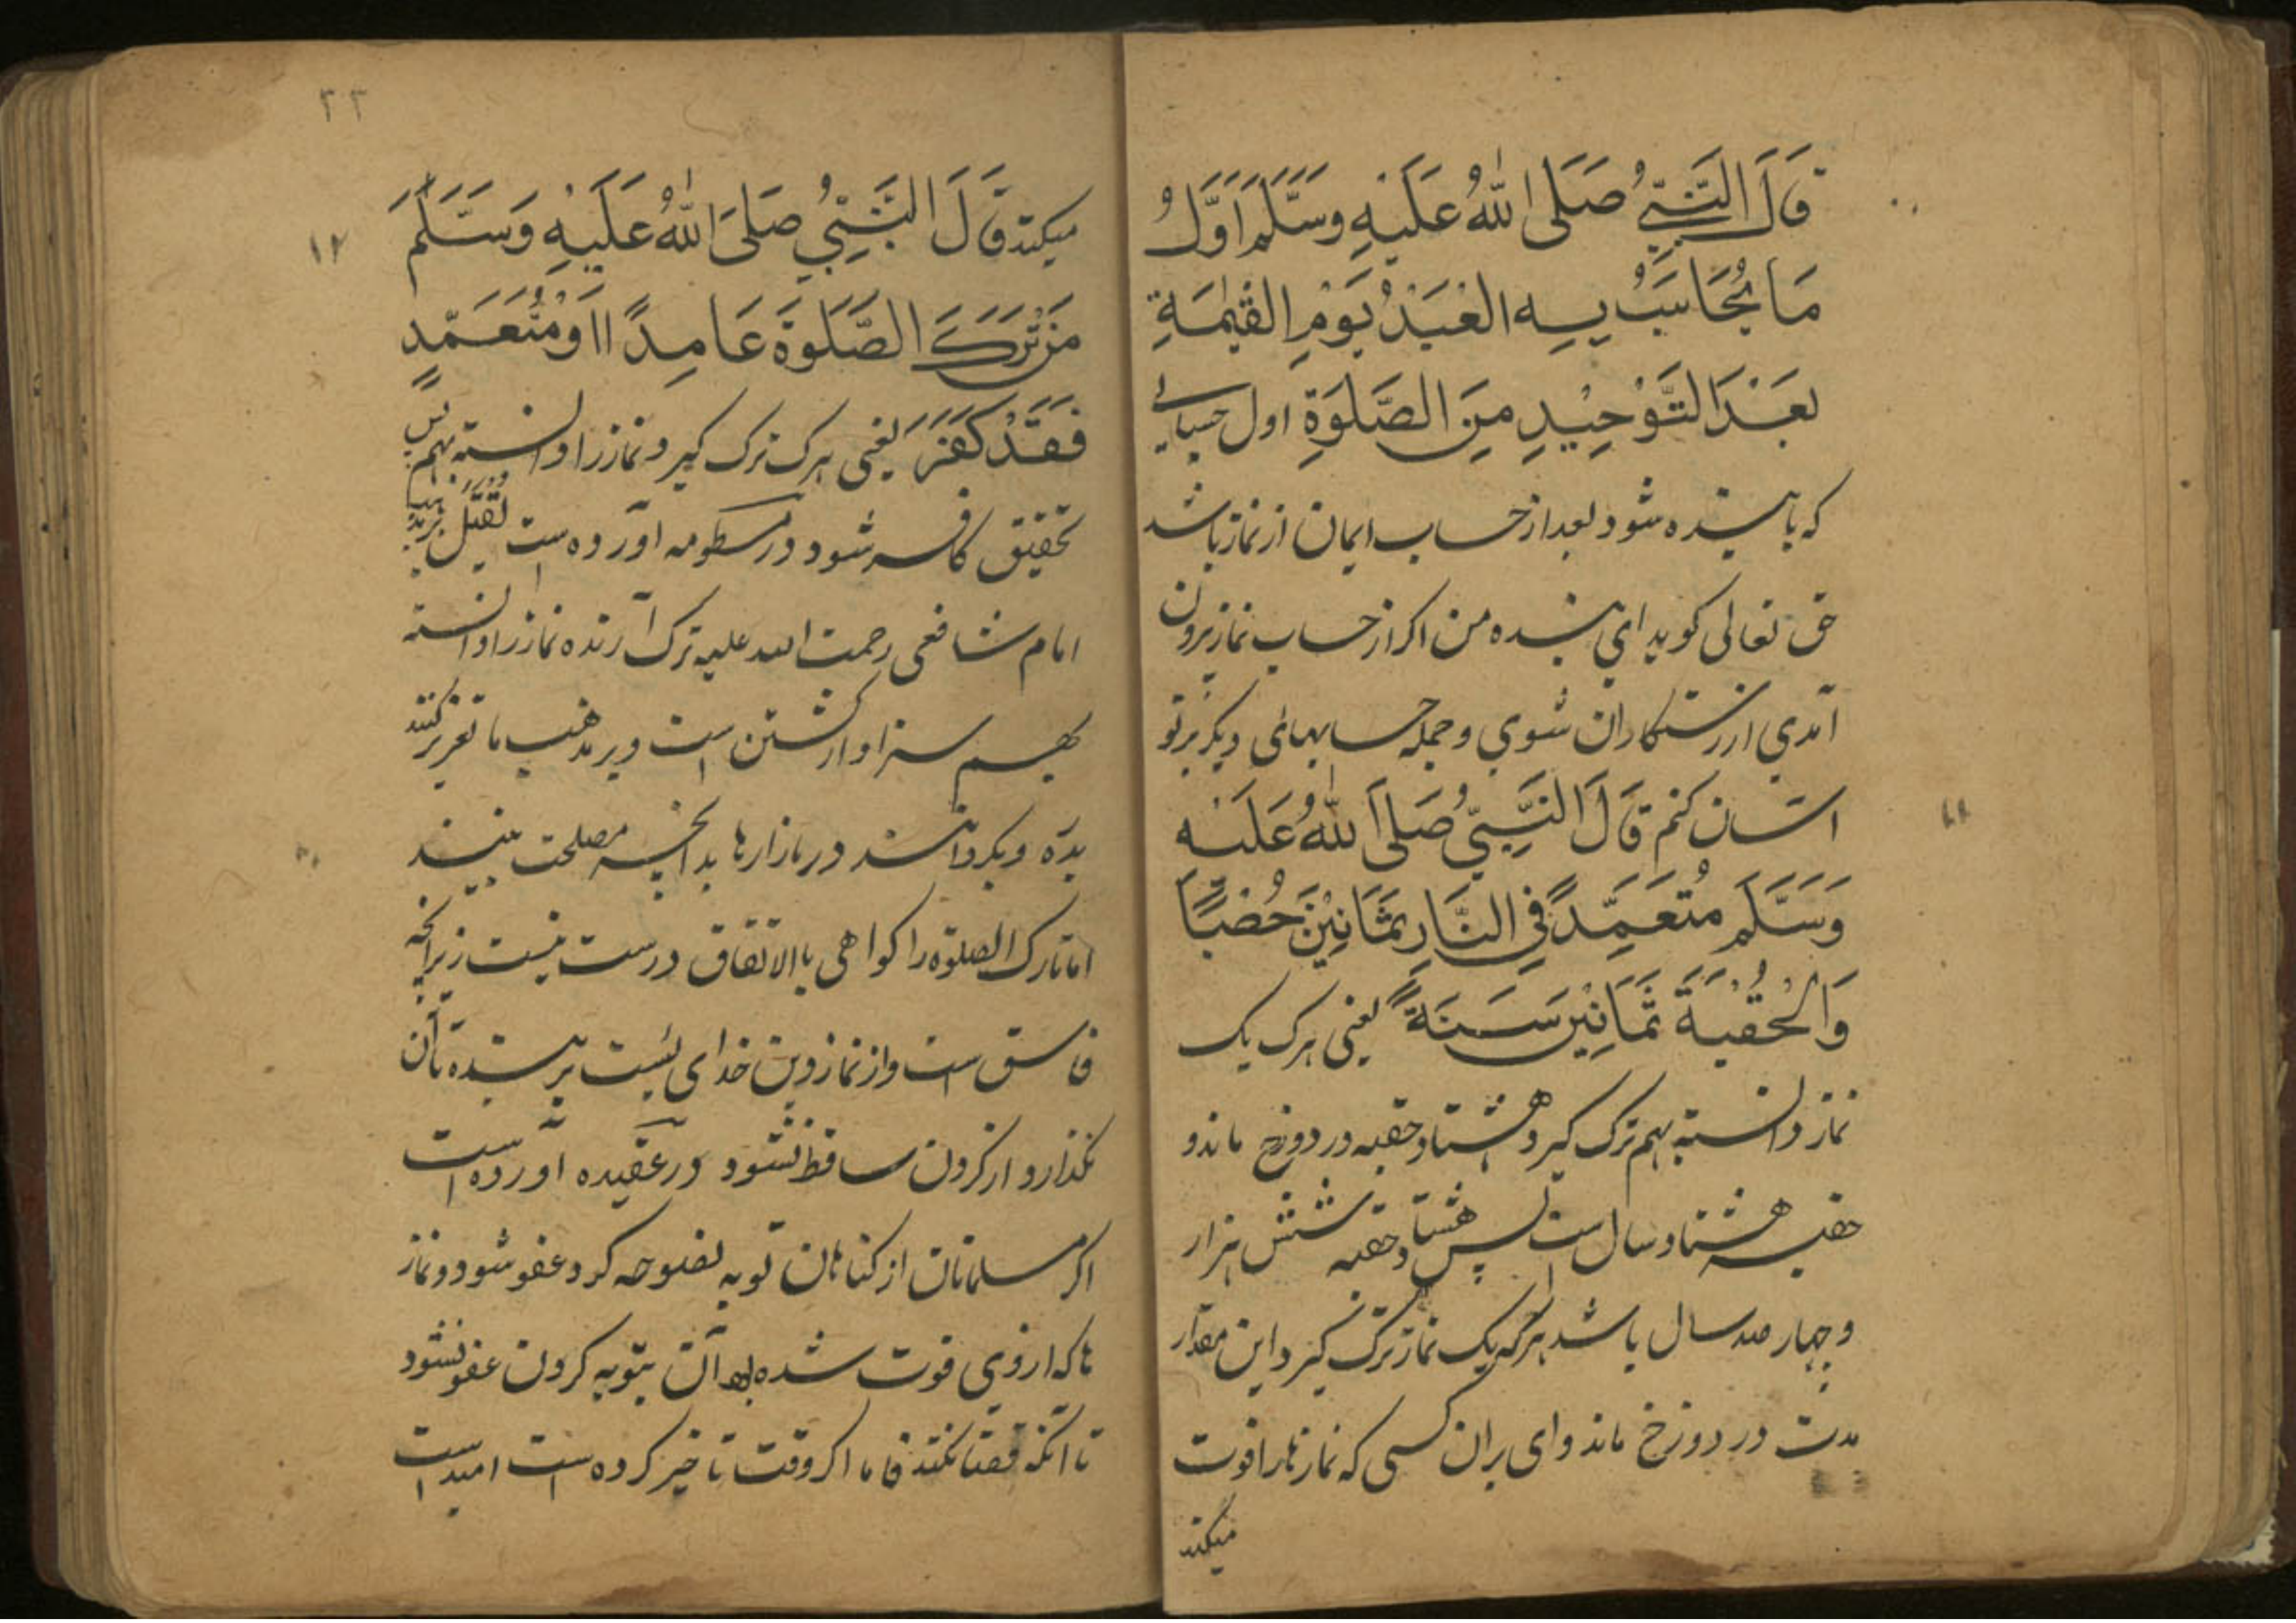 قَالَ النَّبِيُّ صَلَى اللّٰهُ عَلَيْهِ وَسَلَّمَ اَوَّلُ
مَا يُحَاسَبُ بِهِ الْعَبْدُ يَوْمِ الْقِيٰمَةِ
بَعْدَ التَّوْحِيْدِ مِنَ الصَّلٰوةِ اول حسابی
که بابنده شود بعد از حساب ایمان از نماز باشد
حق تعالی کوید ای بنده من اکر از حساب نماز برون
آمدی از رستکاران شوی و جمله حسابهای دیکر بر تو
اسان کنم قَالَ النَّبِيُّ صَلَى اللّٰهُ عَلَيْهِ
وَسَلَّمَ مُتَعَمِّدً فِي النَّارِ ثَمَانِيْنَ
وَالْحُقْبَةَ ثَمَانِيْنَ سَنَةً یعنی هرک یک
نماز دانسته بهم ترک کیرد هشتاد حقبه در دوزخ ماند و
حقبه هشتاد سال است پس هشتاد حقبه شش هزار
و چهار صد سال باشد هرکه یک نماز ترک کیرد این مقدار
مدت در دوزخ ماند وای بران کسی که نمازها را فوت
میکند
٢٣
١٢
میکند قَالَ النَّبِيُّ صَلَى اللّٰهُ عَلَيْهِ وَسَلَّمَ
مَنْ تَرَكَ الصَّلٰوةَ عَامِدًا اَوْ مُتَعَمِّدٍ
فَقَدْ كَفَرَ یعنی هرک ترک کیرد نماز را دانسته بهم پس
تحقیق کافر شود در منظومه آورده است
امام شافعی رحمت الله علیه ترک آرنده نماز را دانسته
بهم سزاوار کشتن است و بر مذهب ما تعزیر کنند
بدره و بکردانند در بازارها بدانچه مصلحت بینند
اما تارک الصلوة را کواهی بالاتفاق درست نیست زیرانچه
فاسق است و از نماز دین خدای است بر بنده تا آن
نکذارد از کردن ساقط نشود در عقیده آورده است
اکر مسلمانان از کناهان توبه نصوحه کرد عفو شود و نماز
ها که از وی فوت شده آن بتوبه کردن عفو نشود
تا انکه قضا نکند فاما اکر وقت تاخیر کرده است امید است